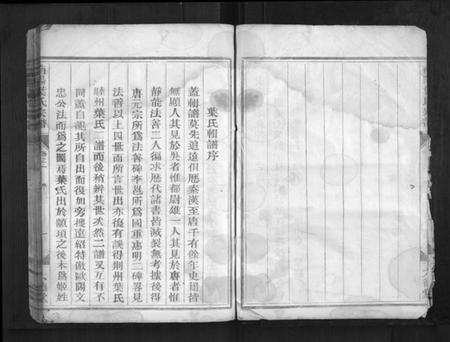 葉氏輯譜序
蓋輯譜莫先追遠但歷秦漢至唐千有餘年史冊皆
無顯人其見於吳者惟都尉雄一人其見於唐者惟
靜能法善二人復求歷代諸書皆滅裂無考據後得
唐元宗所為法善碑李邕所為國重惠明二碑畧見
法善以上四世而所言世出亦復有誤得荆州葉氏
睦州葉氏二譜而後稍辨其世次然二譜又互有不
同蓋自觀其所自出而復加旁搜遠紹特倣歐陽文
忠公法而為之圖焉葉氏出於顓頊之後本為姬姓